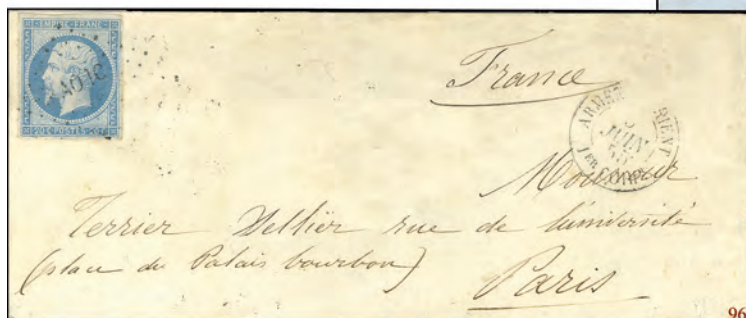 EMPIRE FRANC.
20 c POSTES 20 c
France
ARMÉE RIENT
JUIN
1ER CORPS
Monsieur
Terrier rue de l'université
(place du Palais bourbon)
Paris
96